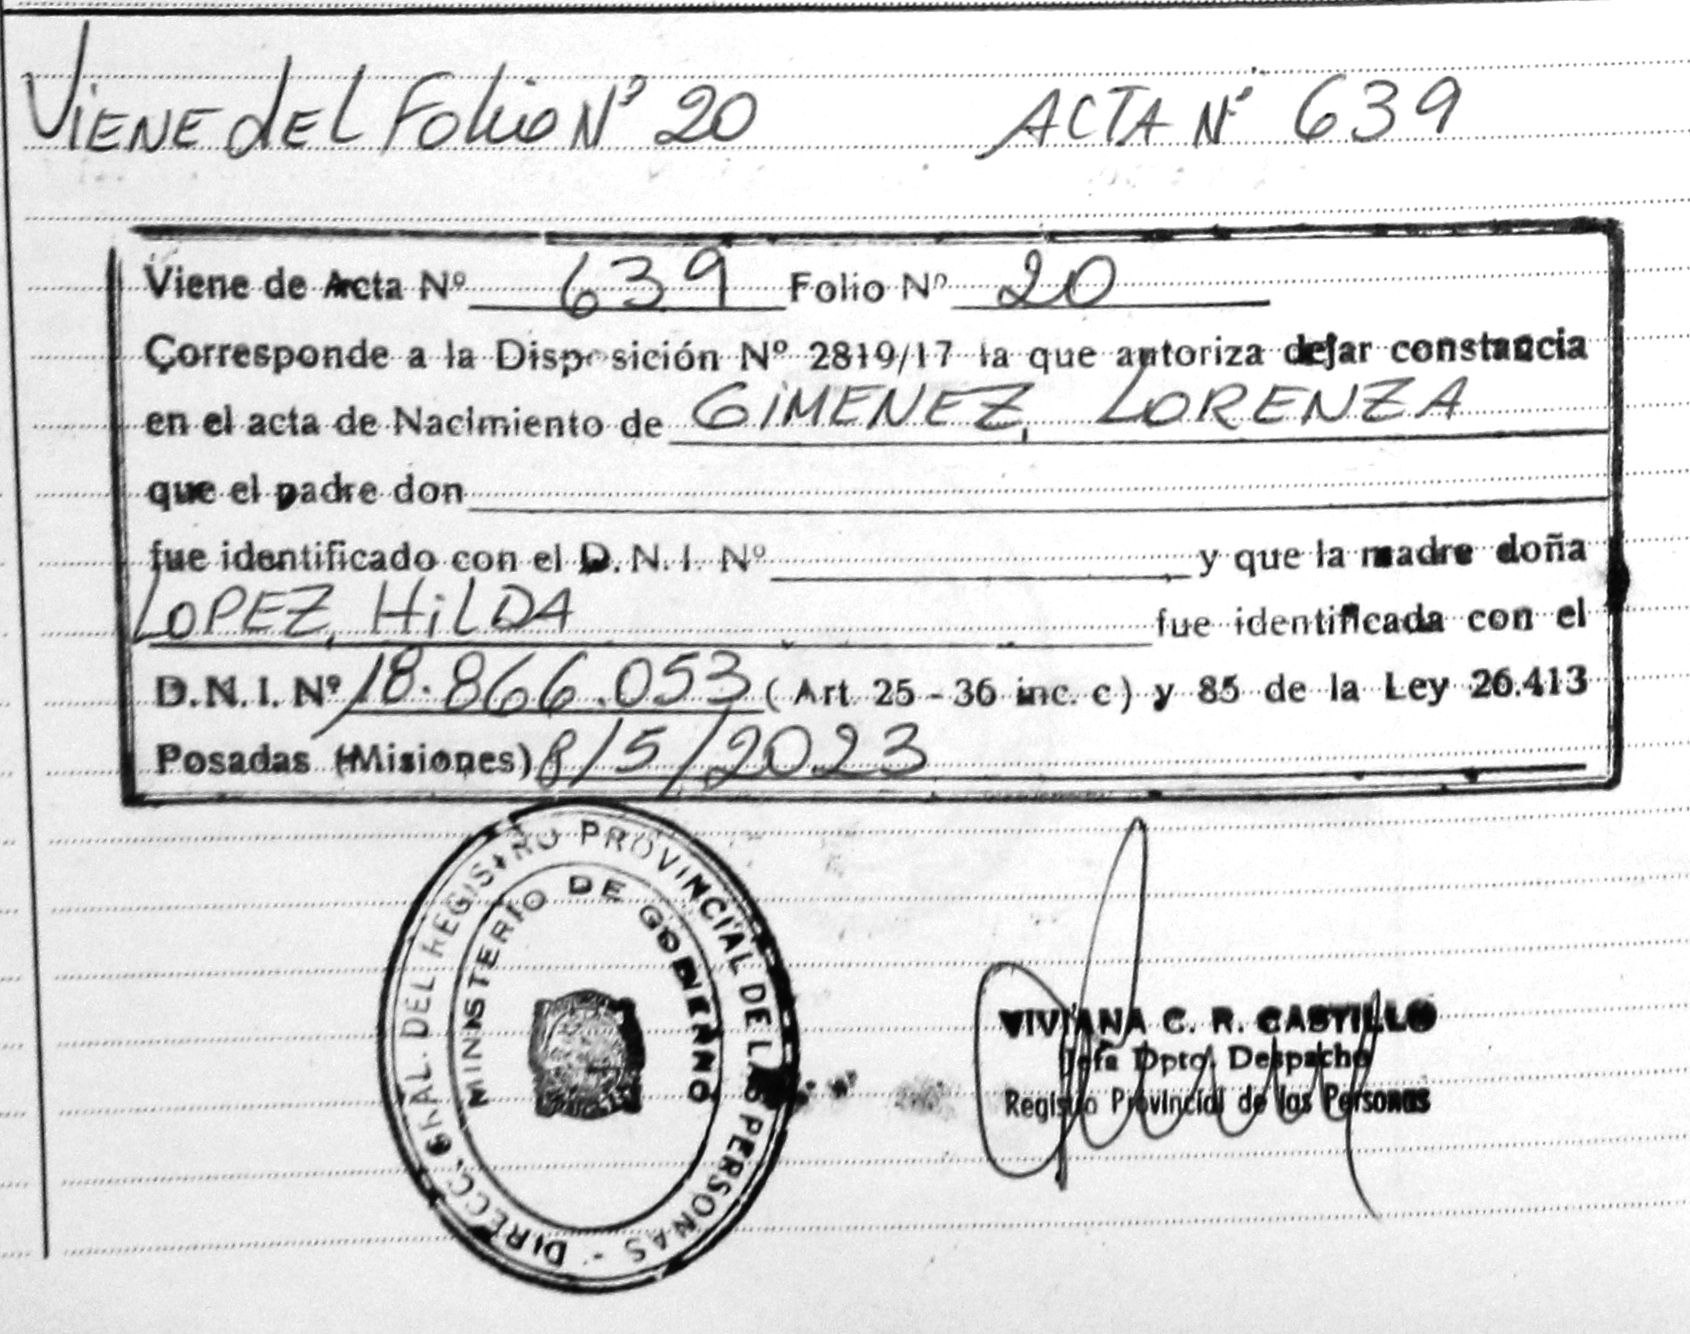 Viene del Folio Nº 20 ACTA Nº 639
Viene de Acta Nº 639 Folio Nº 20
Corresponde a la Disposición Nº 2819/17 la que autoriza dejar constancia
en el acta de Nacimiento de GIMENEZ, LORENZA
que el padre don
fue identificado con el D.N.I. Nº y que la madre doña
LOPEZ, HILDA fue identificada con el
D.N.I. Nº 18.866.053 (Art. 25 - 36 inc. c) y 85 de la Ley 26.413
Posadas (Misiones) 8/5/2023
DIRECC. GRAL. DEL REGISTRO PROVINCIAL DE LAS PERSONAS -
MINISTERIO DE GOBIERNO
VIVIANA C. R. CASTILLO
Jefa Dpto. Despacho
Registro Provincial de las Personas